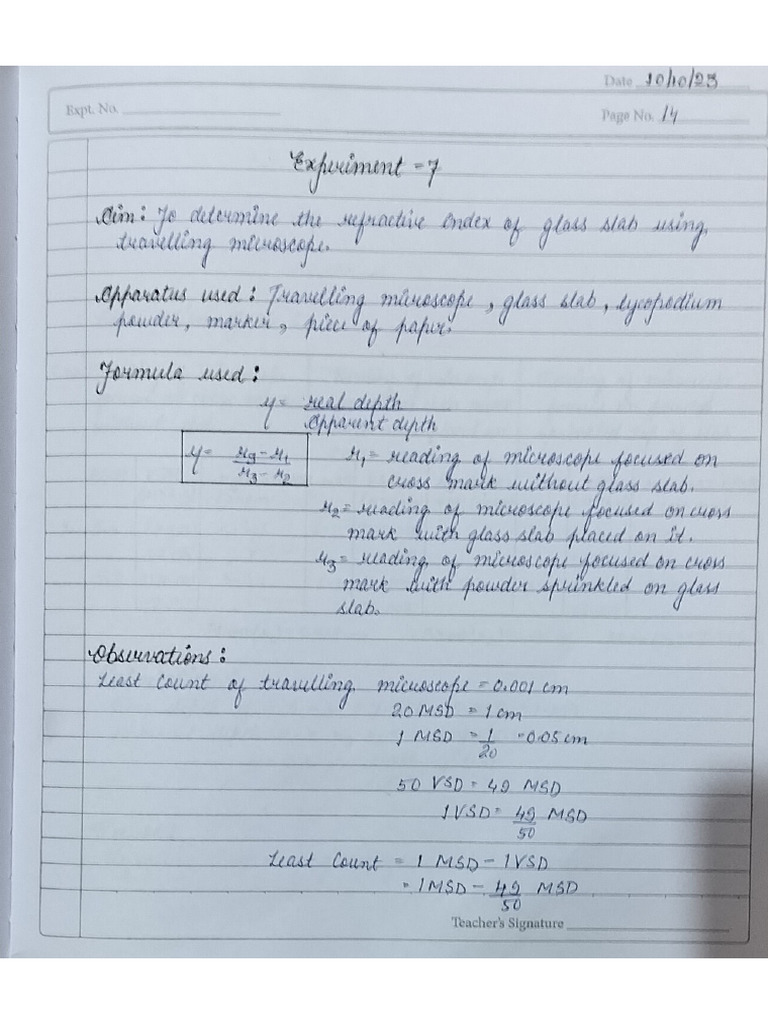 Date 10/10/25
Expt. No.
Page No. 14
Experiment = 7
Aim: To determine the refractive index of glass slab using
travelling microscope.
Apparatus used: Travelling microscope, glass slab, lycopodium
powder, marker, piece of paper.
Formula used:
μ = real depth
Apparent depth
μ = r3 - r1
r3 - r2
r1 = reading of microscope focused on
cross mark without glass slab.
r2 = reading of microscope focused on cross
mark with glass slab placed on it.
r3 = reading of microscope focused on cross
mark with powder sprinkled on glass
slab.
Observations:
Least Count of travelling microscope = 0.001 cm
20 MSD = 1 cm
1 MSD = 1/20 = 0.05 cm
50 VSD = 49 MSD
1 VSD = 49/50 MSD
Least Count = 1 MSD - 1 VSD
= 1 MSD - 49/50 MSD
Teacher's Signature